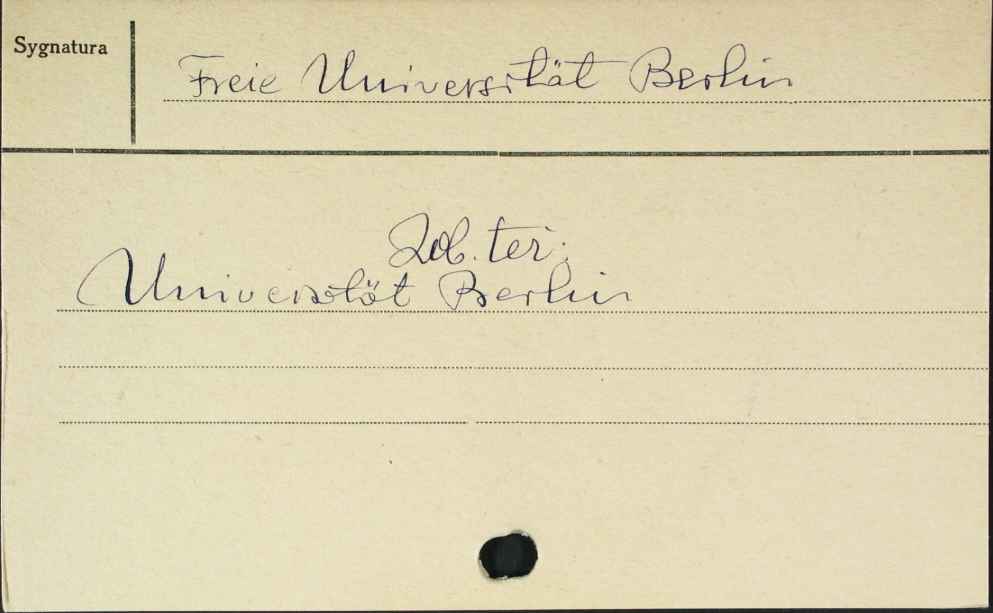 Sygnatura
Freie Universität Berlin
Zob. też:
Universität Berlin